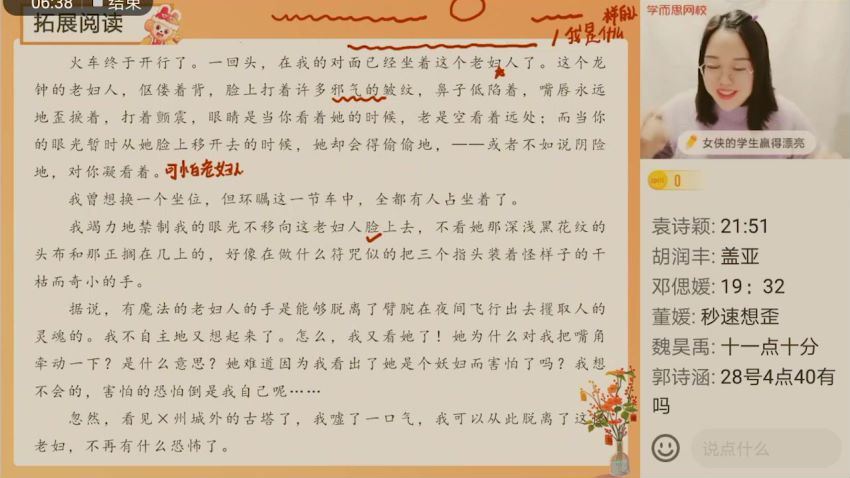 06:38 结束
拓展阅读
样的
我是什么
火车终于开行了。一回头，在我的对面已经坐着这个老妇人了。这个龙
钟的老妇人，伛偻着背，脸上打着许多邪气的皱纹，鼻子低陷着，嘴唇永远
地歪捩着，打着颤震，眼睛是当你看着她的时候，老是空看着远处；而当你
的眼光暂时从她脸上移开去的时候，她却会得偷偷地，——或者不如说阴险
地，对你凝看着。可怕老妇人
我曾想换一个坐位，但环瞩这一节车中，全都有人占坐着了。
我竭力地禁制我的眼光不移向这老妇人脸上去，不看她那深浅黑花纹的
头布和那正搁在几上的，好像在做什么符咒似的把三个指头装着怪样子的干
枯而奇小的手。
据说，有魔法的老妇人的手是能够脱离了臂腕在夜间飞行出去攫取人的
灵魂的。我不自主地又想起来了。怎么，我又看她了！她为什么对我把嘴角
牵动一下？是什么意思？她难道因为我看出了她是个妖妇而害怕了吗？我想
不会的，害怕的恐怕倒是我自己呢……
忽然，看见×州城外的古塔了，我嘘了一口气，我可以从此脱离了这
老妇，不再有什么恐怖了。
学而思网校
女侠的学生赢得漂亮
0
袁诗颖: 21:51
胡润丰: 盖亚
邓偲媛: 19：32
董媛: 秒速想歪
魏昊禹: 十一点十分
郭诗涵: 28号4点40有
吗
说点什么